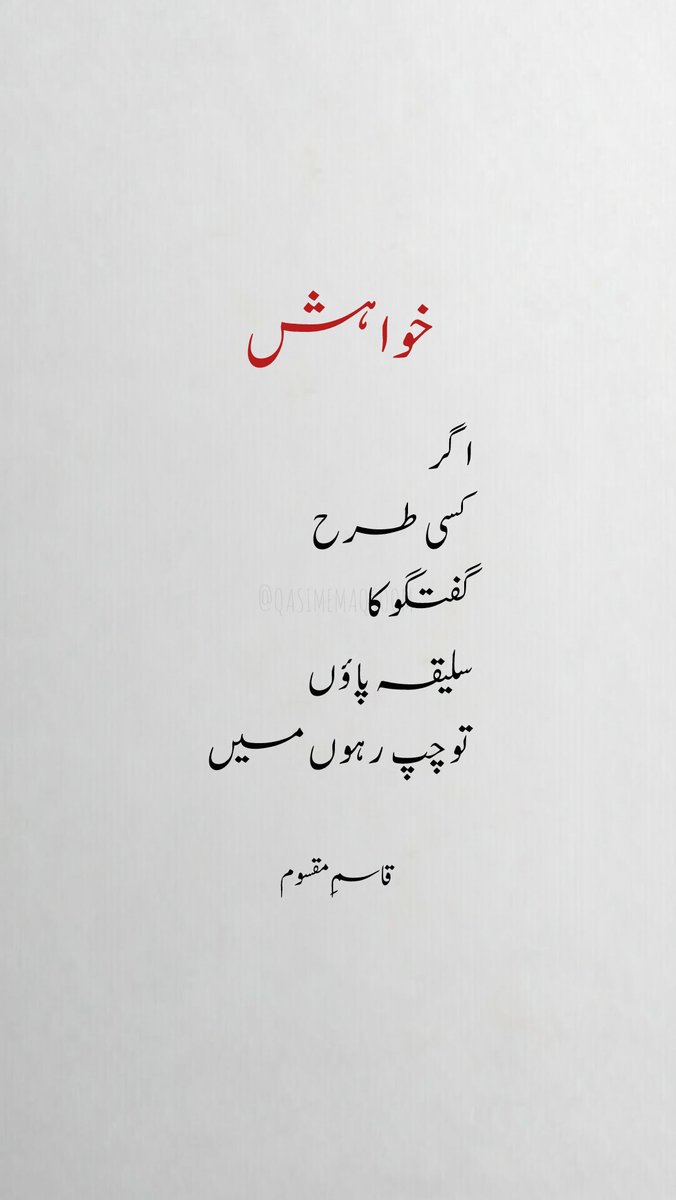 خواہش
اگر
کسی طرح
گفتگو کا
سلیقہ پاؤں
تو چپ رہوں میں
قاسمِ مقسوم